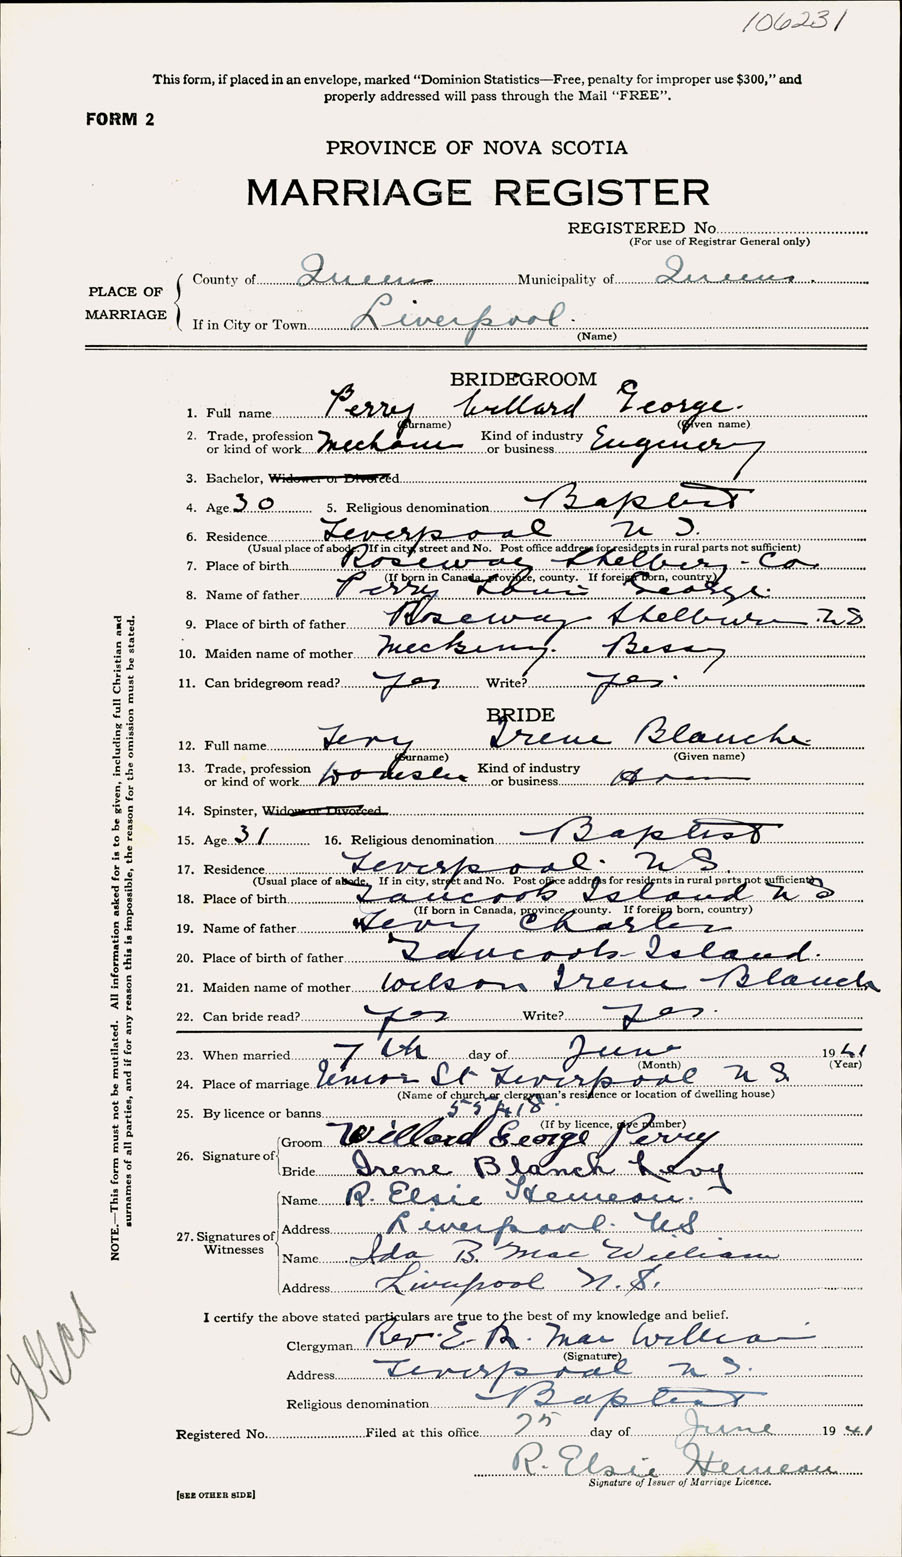 106231
This form, if placed in an envelope, marked "Dominion Statistics—Free, penalty for improper use $300," and
properly addressed will pass through the Mail "FREE".
FORM 2
PROVINCE OF NOVA SCOTIA
MARRIAGE REGISTER
REGISTERED No.
(For use of Registrar General only)
PLACE OF MARRIAGE
County of Queens Municipality of Queens.
If in City or Town Liverpool.
(Name)
BRIDEGROOM
1. Full name Perry Willard George.
(Surname) (Given name)
2. Trade, profession or kind of work Mechanic Kind of industry or business
3. Bachelor, Widower or Divorced
4. Age 30 5. Religious denomination Baptist
6. Residence Liverpool N S.
(Usual place of abode. If in city, street and No. Post office address for residents in rural parts not sufficient)
7. Place of birth Roseway Shelburn-Co
(If born in Canada, province, county. If foreign born, country)
8. Name of father Perry George.
9. Place of birth of father Roseway Shelburn NS
10. Maiden name of mother Bessy
11. Can bridegroom read? yes Write? yes.
BRIDE
12. Full name Levy Irene Blanche
(Surname) (Given name)
13. Trade, profession or kind of work Kind of industry or business
14. Spinster, Widow or Divorced
15. Age 31 16. Religious denomination Baptist
17. Residence Liverpool. NS
(Usual place of abode. If in city, street and No. Post office address for residents in rural parts not sufficient)
18. Place of birth Tancook Island N S
(If born in Canada, province, county. If foreign born, country)
19. Name of father Levy Charles
20. Place of birth of father Tancook Island.
21. Maiden name of mother Wilson Irene Blanch
22. Can bride read? yes Write? yes.
23. When married 7th day of June 1941
(Month) (Year)
24. Place of marriage Union St Liverpool N S
(Name of church or clergyman's residence or location of dwelling house)
25. By licence or banns 55418
(If by licence, give number)
26. Signature of
Groom Willard George Perry
Bride Irene Blanch Levy
27. Signatures of Witnesses
Name R. Elsie Hemeon.
Address Liverpool. NS
Name Ida B. Mac William
Address Liverpool N.S.
I certify the above stated particulars are true to the best of my knowledge and belief.
Clergyman Rev. E. R. Mac William
(Signature)
Address Liverpool N S.
Religious denomination Baptist
Registered No. Filed at this office day of June 1941
R. Elsie Hemeon
Signature of Issuer of Marriage Licence.
[SEE OTHER SIDE]
NOTE.—This form must not be mutilated. All information asked for is to be given, including full Christian and
surnames of all parties, and if for any reason this is impossible, the reason for the omission must be stated.